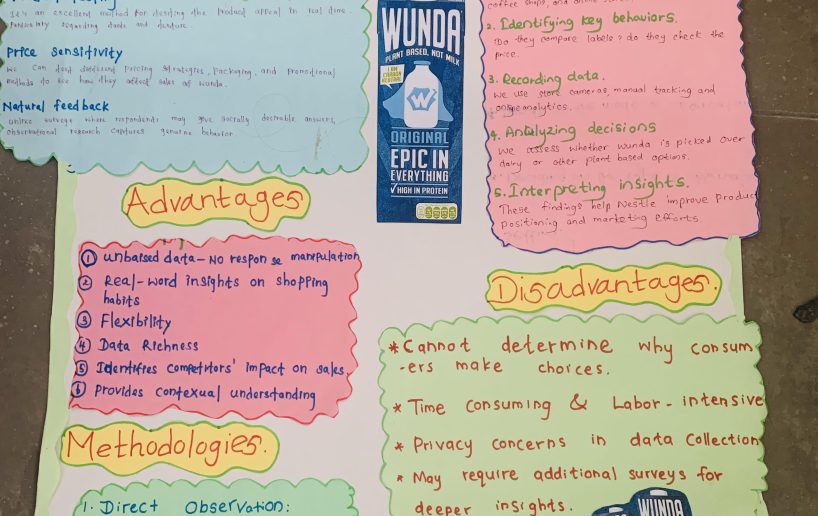 It's an excellent method for testing the product appeal in real time.
Price sensitivity
We can test different pricing strategies, packaging, and promotional
methods to see how they affect sales of wunda.
Natural feedback
unlike surveys where respondents may give socially desirable answers,
observational research captures genuine behavior.
WUNDA
PLANT BASED, NOT MILK
I AM
CARBON
NEUTRAL
W
ORIGINAL
EPIC IN
EVERYTHING
HIGH IN PROTEIN
coffee shops, and
2. Identifying key behaviors.
Do they compare labels? do they check the
price.
3. Recording data.
We use store cameras, manual tracking and
analytics.
4. Analyzing decisions
We assess whether wunda is picked over
dairy or other plant based options.
5. Interpreting insights.
These findings help Nestle improve product
positioning and marketing efforts.
Advantages
1 unbaised data - No response manipulation
2 Real-word insights on shopping
habits
3 Flexibility
4 Data Richness
5 Identifies competitors' impact on sales
6 Provides contexual understanding
Disadvantages.
* Cannot determine why consum
-ers make choices.
* Time consuming & Labor-intensive
* Privacy concerns in data collection
* May require additional surveys for
deeper insights.
WUNDA
Methodologies.
1. Direct Observation: